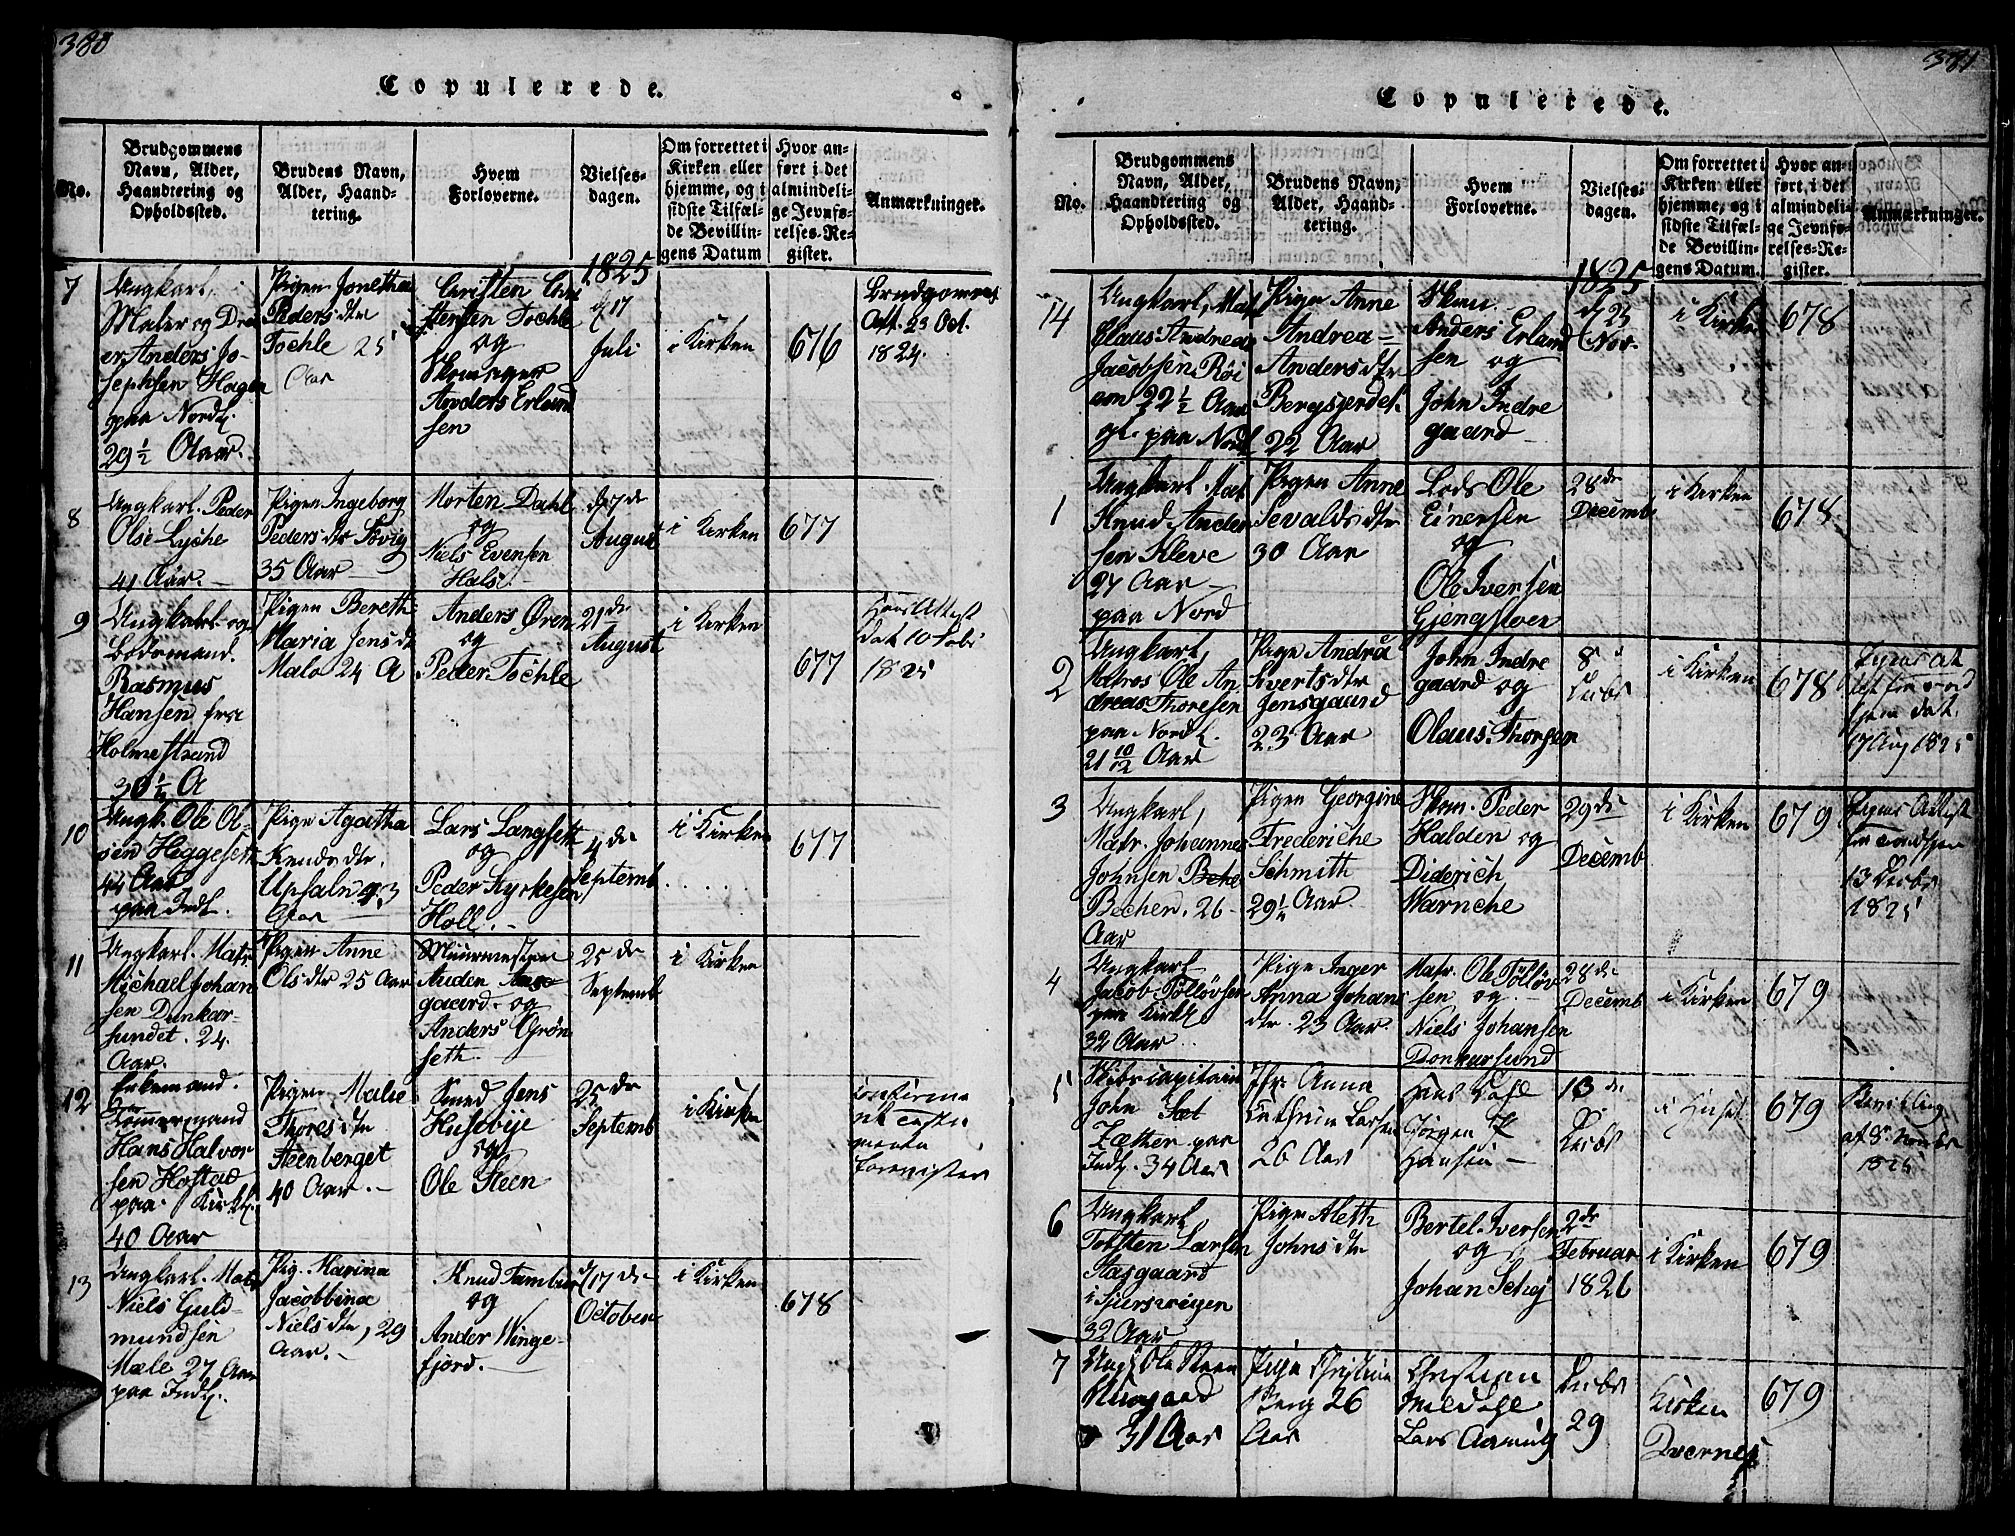 380
Copulerede.
No.
Brudgommens Navn, Alder, Haandtering og Opholdssted.
Brudens Navn, Alder, Haandtering.
Hvem Forloverne.
Vielsesdagen.
Om forrettet i Kirken eller hjemme, og i sidste Tilfælde Bevillingens Datum
Hvor anført i det almindelige Jevnførelses-Register.
Anmærkninger.
1825
7
Ungkarl,
Maler og
er Anders Jo-
sephsen Hagen
paa Nordl.
29 1/2 Aar.
Pigen Jonetha
Peders dtr
Tochle 25
Aar
Christen Chri
stensen Tochle
og
Skomager
Anders Erland
sen
d 17
Juli
i Kirken
676
Brudgomens
Att. 23 Oct.
1824.
8
Ungkarl. Peder
Olse Lyche
41 Aar.
Pigen Ingeborg
Peders dtr
35 Aar
Morten Dahl
og
Niels Evensen
Hals.
d 7de
August
i Kirken
677
9
Ungkarl og
Bodsmand.
Rasmus
Hansen fra
Holmestrand
30 1/2 A
Pigen Bereth
Maria Jens dt
Malo 24 A
Anders Øren
og
Peder Tochle
21de
August
i Kirken
677
Attest
dat 10
1825
10
Ungk. Ole Ol-
sen Heggeset
44 Aar
paa Indl.
Pige Agatha
Knuds dtr.
Upsaln 43
Aar
Lars Langset
og
Peder Kyrkesen
Holl.
4 de
Septemb
i Kirken
677
11
Ungkarl. Matr.
Michael Johan
sen Dunkar-
sundet. 24.
Aar.
Pigen Anne
Ols dtr 25 Aar
Muurmester
Auden Aas-
gaard. og
Anders Grøn
seth
25 de
Septemb
i Kirken
12
Enkemand.
Tømmermand
Hans Halvor
sen Hostad
paa Kirkl.
40 Aar
Pigen Malie
Thores dtr
Steenberget
40 Aar.
Smed Jens
Husebye
og
Ole Steen
25 de
Septemb
i Kirken
13
Ungkarl. Matr
Niels Guld-
mundsen
Mæle 27 Aar
paa Indl.
Pig. Marina
Jacobbina
Niels dtr, 29
Aar.
Knud Tambur
og
Ander Winge-
fjord.
d 17 de
October
i Kirken
678
381
Copulerede.
No.
Brudgommens Navn, Alder, Haandtering og Opholdssted.
Brudens Navn, Alder, Haandtering.
Hvem Forloverne.
Vielsesdagen.
Om forrettet i Kirken eller hjemme, og i sidste Tilfælde Bevillingens Datum.
Hvor anført, i det almindelige Jevnførelses-Register.
Anmærkninger.
1825
14
Ungkarl, Matr
Claus Andreas
Jacobsen Røi
em 22 1/2 Aar
gl. paa Nordl
Pige Anne
Andrea
Anders dtr
Bergsgerdet.
22 Aar
Skom.
Anders Erland
sen og
John Indre
gaard
d 25
Nov.
i Kirke
678
1
Ungkarl Mat
Knud Ander
sen Kleve
27 Aar
paa Nord
Pigen Anne
Sevalds dtr
30 Aar
Lods Ole
Einersen
og
Ole Iversen
Gjengstøen
28 de
Decemb
i Kirken
678
2
Ungkarl,
Matros Ole An
dreas Thoresen
paa Nordl.
21 10/12 Aar
Pige Andrea
Siverts dtr
Jensgaard
23 Aar
John Indre
gaard og
Olaus Thorsen
8
i Kirken
678
17 Aug 1825
3
Ungkarl,
Matr. Johannes
Johnsen
Bechen. 26
Aar
Pigen Georgine
Frederiche
Schmith
29 1/4 Aar
Skom. Peder
Halden og
Diderich
Warnche
29 de
Decemb
i Kirken
679
Pigens Attest
13 Decbr
1825
4
Ungkarl
Jacob Tølløvsen
paa Kirkl
32 Aar
Pige Inger
Anna Johans
dtr. 23 Aar.
Matr. Ole Tølløv
sen og
Niels Johansen
Donkarsund
28 de
Decemb
i Kirken
679
5
Skibscapitain
John Sæt
Zæther paa
Indl. 34 Aar
Jfr Anna
Cathrin Larsen
26 Aar
Hans Dahl
Jørgen
Hansen
13 de
Decbr
i Huset
679
Bevilling
af 8 Novbr
1825
6
Ungkarl
Torsten Larsen
Aasgaard
i
32 Aar
Pige Aleth
Johns dtr
Bertel Iversen
og
Johan Schej
2de
Februar
1826
i Kirken
679
7
Ungk Ole Steen
31 Aar
Pige Christine
Berg 26
Aar
Christian
Meldahl
Lars
Decbr
29
Kirken
Qvernes
679